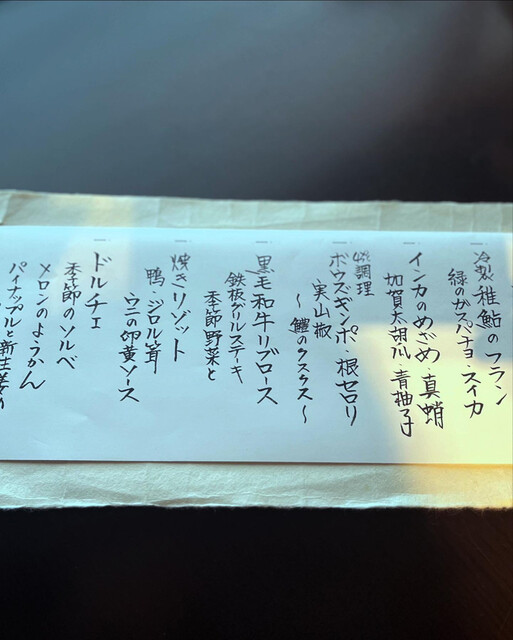 冷製稚鮎のフラン
緑のガスパチョ・スイカ
インカのめざめ・真蛸
加賀太胡瓜・青柚子
調理
ボウズギンポ・根セロリ
実山椒
～鱧のクスクス～
黒毛和牛リブロース
鉄板グリルステーキ
季節野菜と
焼きリゾット
鴨・ジロル茸
ウニの卵黄ソース
ドルチェ
季節のソルベ
メロンのようかん
パイナップルと新生姜の